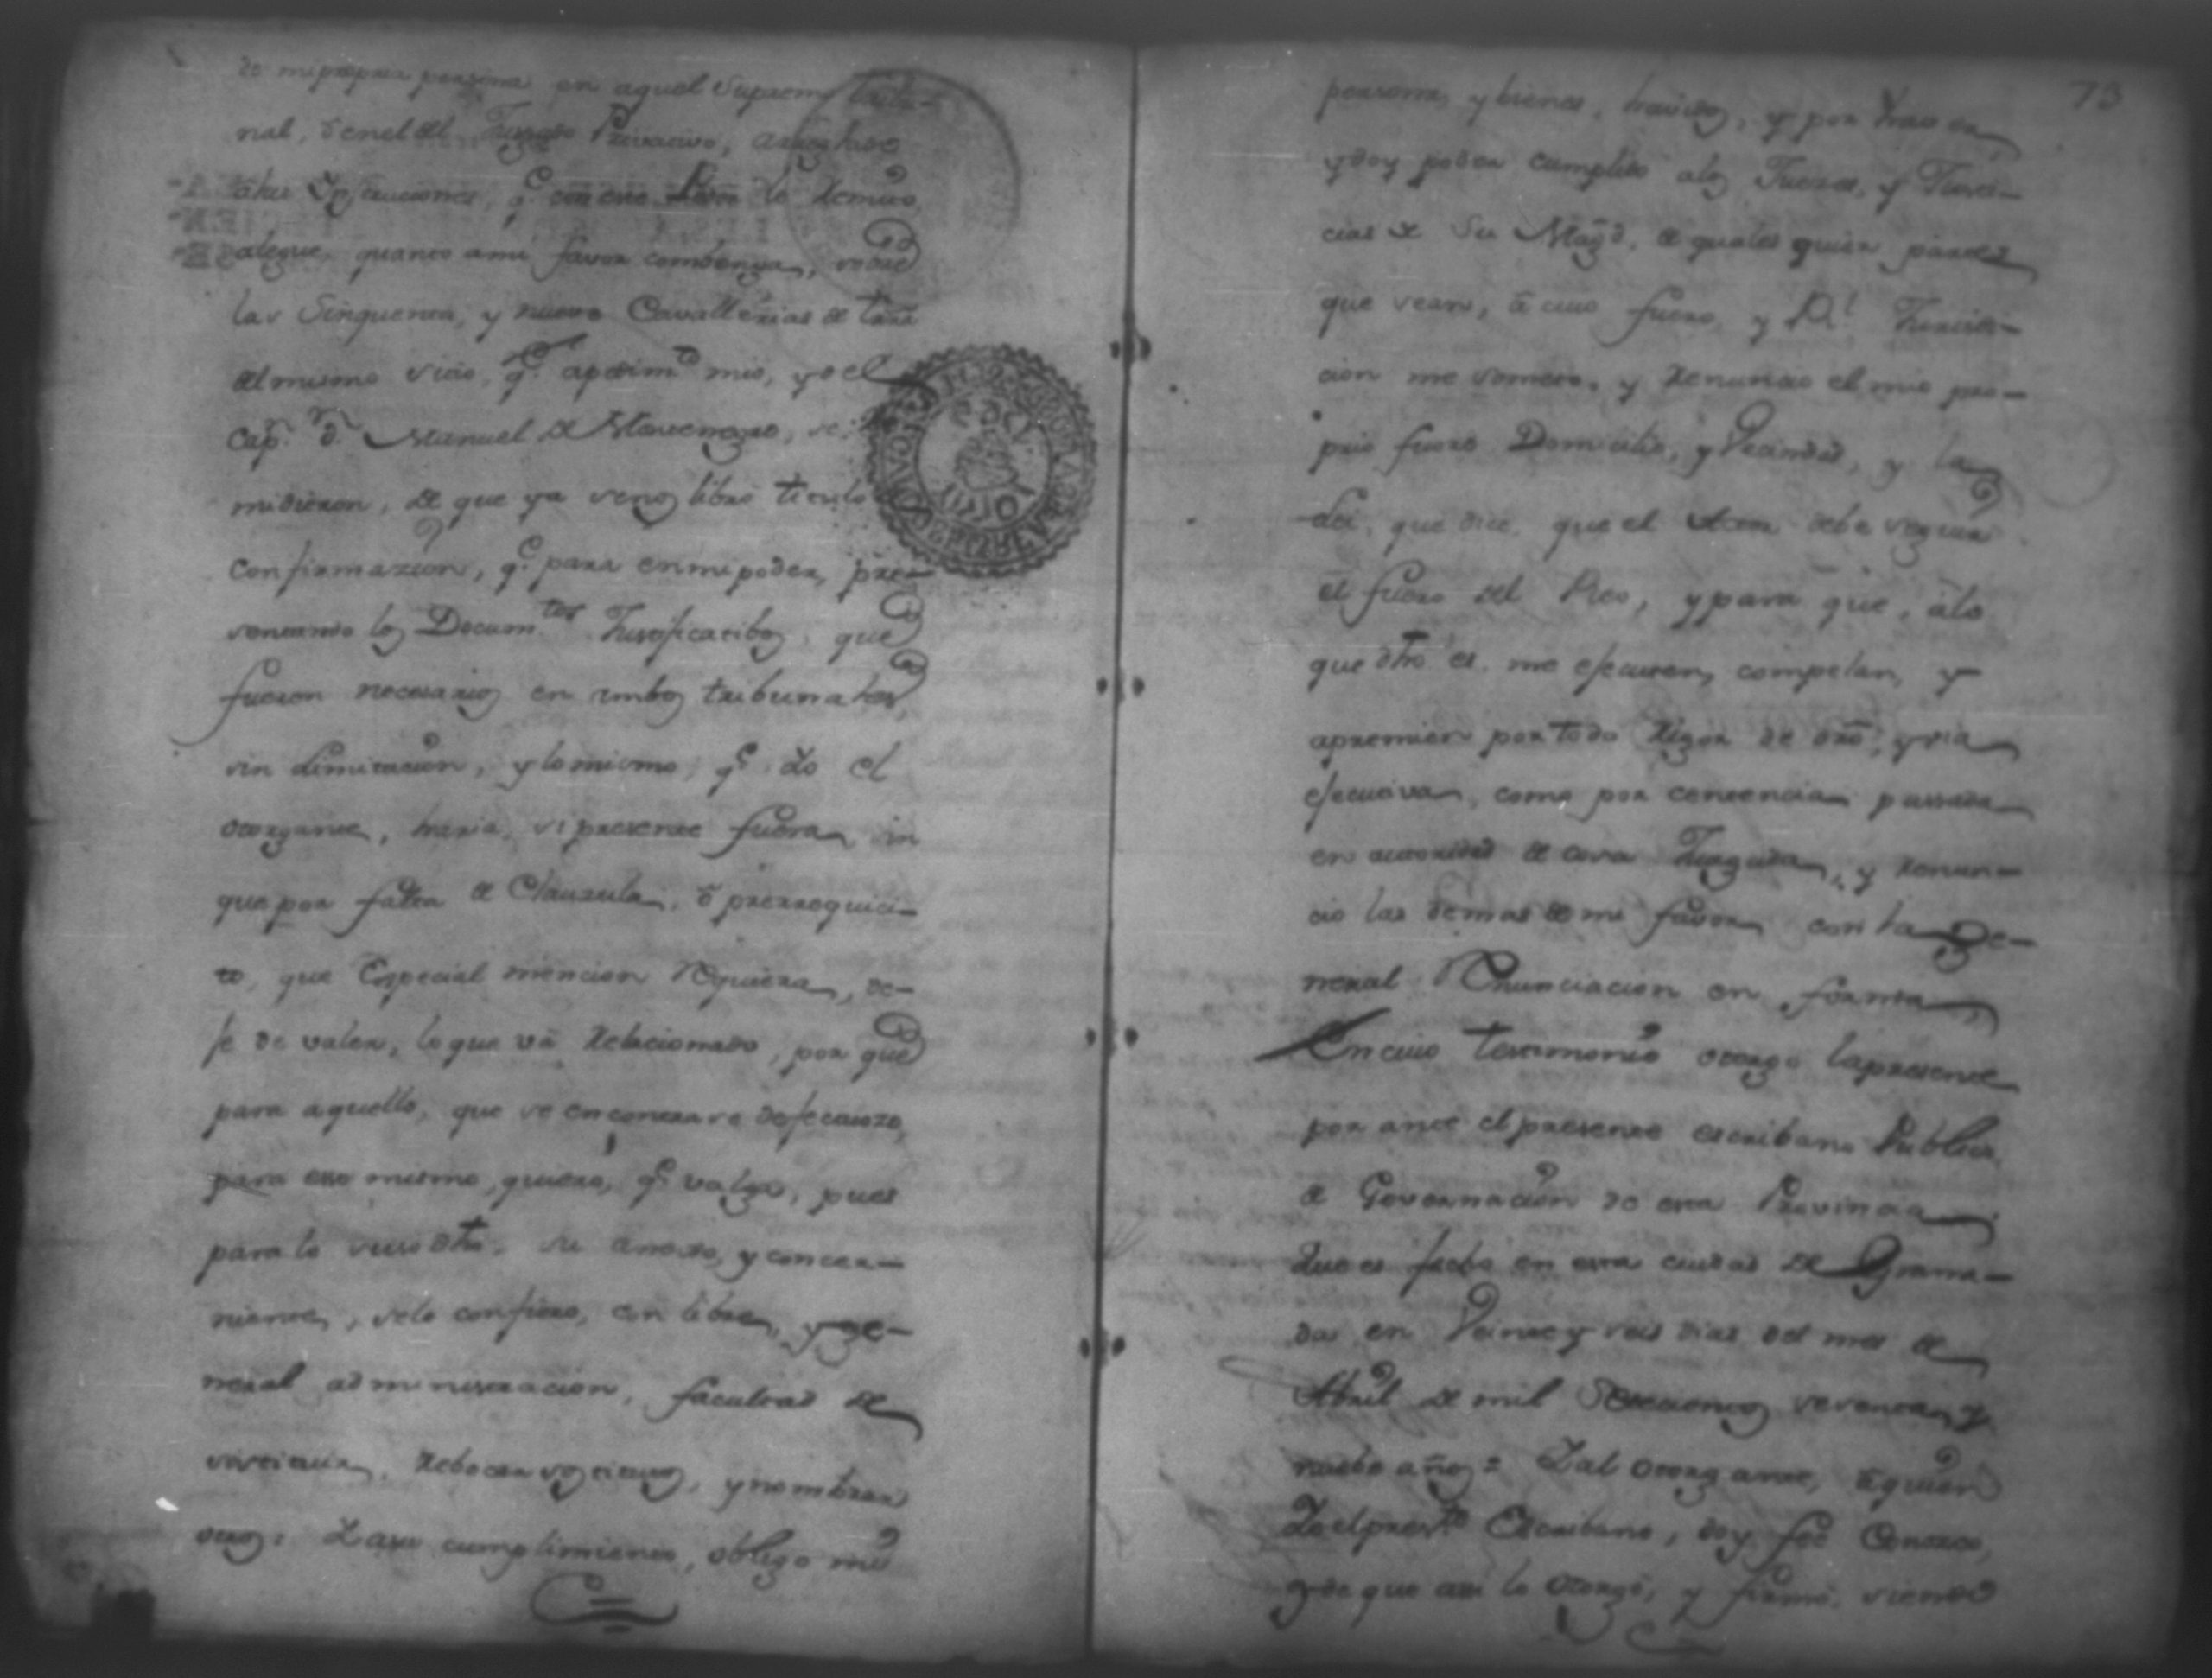 de mi propria persona en aquel Supremo Tribu-
nal, ò en el del Juzgado Privativo, arreglado
à las Instrucciones, q.e con este Poder le Remito,
alegue, quanto ami favor combenga, sobre
las Sinquenta, y nueve Cavallerias de trrã
del mismo sitio, q.e apedim.to mio, y de el
Cap.n d.n Manuel de Montenegro, se
midieron, de que ya se nos libró titulo
Confirmazion, q.e para en mi poder, pre-
sentando los Docum.tos Justificatibos, que
fueren necesarios en ambos tribunales,
sin limitacion, y lo mismo, q.e Yo el
otorgante, haria, si presente fuera, sin
que por falta de Clauzula, ò prerrequici-
to, que Especial mencion Requiera, de-
je de valer, lo que vá Relacionado, por que
para aquello, que se encontrare defectuozo,
para eso mismo, quiero, q.e valga, pues
para lo suso dho, su anexo, y concer-
niente, selo confiero, con libre, y ge-
neral administracion, facultad de
sostituir, Rebocar sostitutos, y nombrar
otros: Y asu cumplimiento, obligo mi
73
persona, y bienes, havidos, y por haver
y doy poder cumplido alos Jueces, y Justi-
cias de Su Mag.d, de quales quier partes
que sean, à cuio fuero, y R.l Jurisdi-
cion me someto, y Renuncio el mio pro-
prio fuero Domicilio, y Vecindad, y la
Lei, que dice, que el Actor debe seguir
el fuero del Reo, y para que, àlo
que dho es, me ejecuten, compelan, y
apremien por todo Rigor de dro, y via
ejecutiva, como por centencia passada
en autoridad de cosa Juzgada, y Renun-
cio las demas de mi favor con la Ge-
neral Renunciacion en forma,
En cuio testimonio otorgo la presente
por ante el presente escribano Publico
de Governacion de esta Provincia
Que es fecho en esta ciudad de Grana-
da en Veinte y seis dias del mes de
Abril de mil Setecientos sesenta, y
nuebe años = Y al otorgante, àquien
Yo el pres.te Escribano, doy feé Conozco,
y de que asi lo otorgó, y firmó, siendo